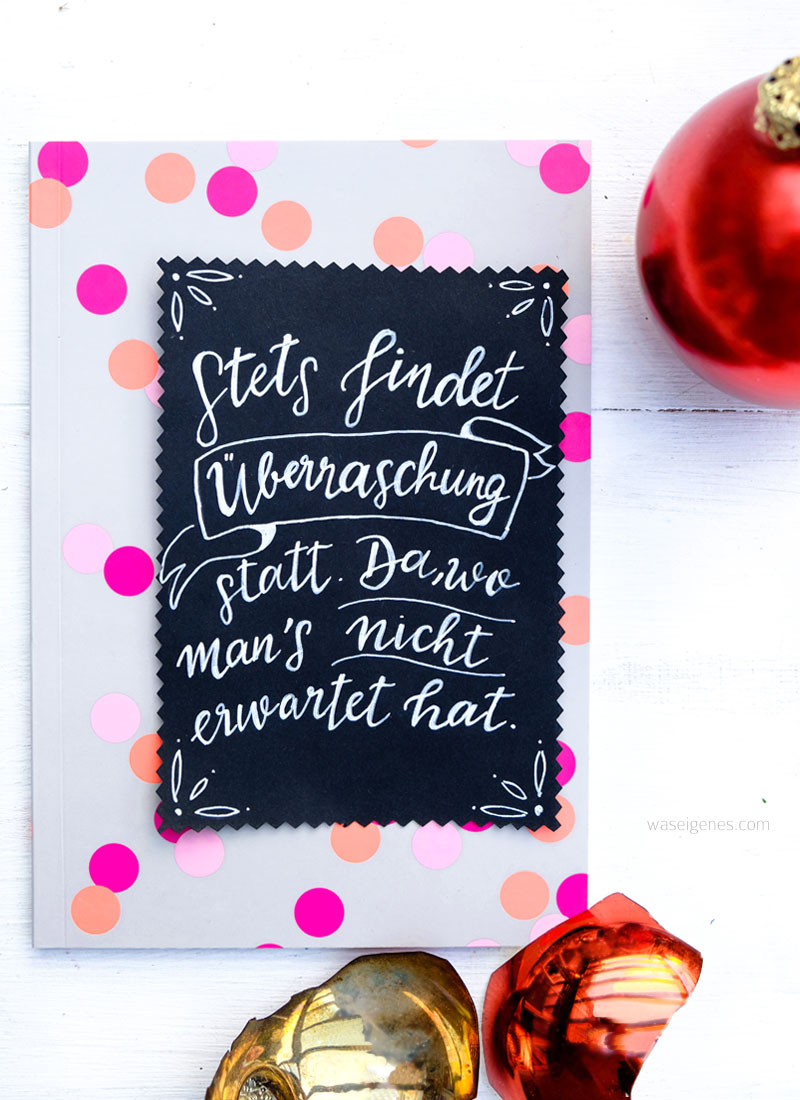 Stets findet
Überraschung
statt. Da, wo
man's nicht
erwartet hat.
waseigenes.com